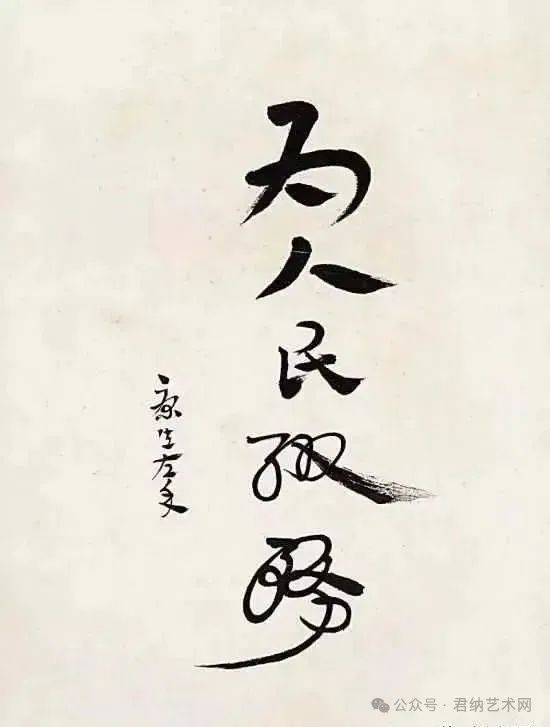 为人民服务
康生左手
公众号·君纳艺术网